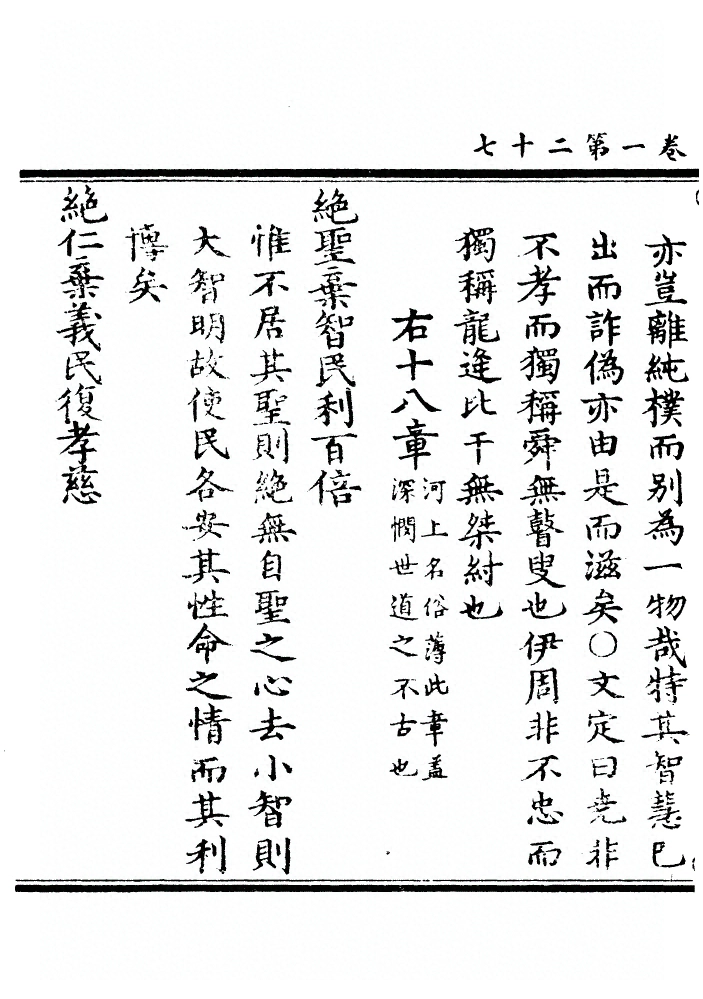 卷一第二十七
亦豈離純樸而别為一物哉特其智慧已
出而詐偽亦由是而滋矣〇文定曰堯非
不孝而獨稱舜無瞽叟也伊周非不忠而
獨稱龍逄比干無桀紂也
右十八章
河上名俗薄此章盖
深憫世道之不古也
絶聖棄智民利百倍
惟不居其聖則絶無自聖之心去小智則
大智明故使民各安其性命之情而其利
博矣
絶仁棄義民復孝慈